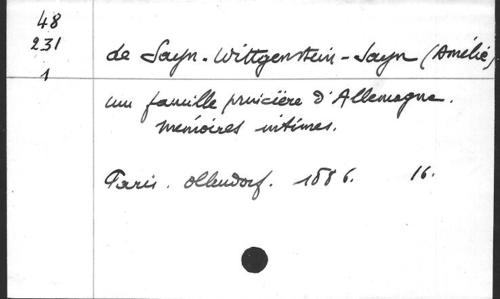 48
231
1
de Sayn-Wittgenstein-Sayn (Amélie)
une famille princière d'Allemagne.
Mémoires intimes.
Paris. Ollendorf. 1886. 16.